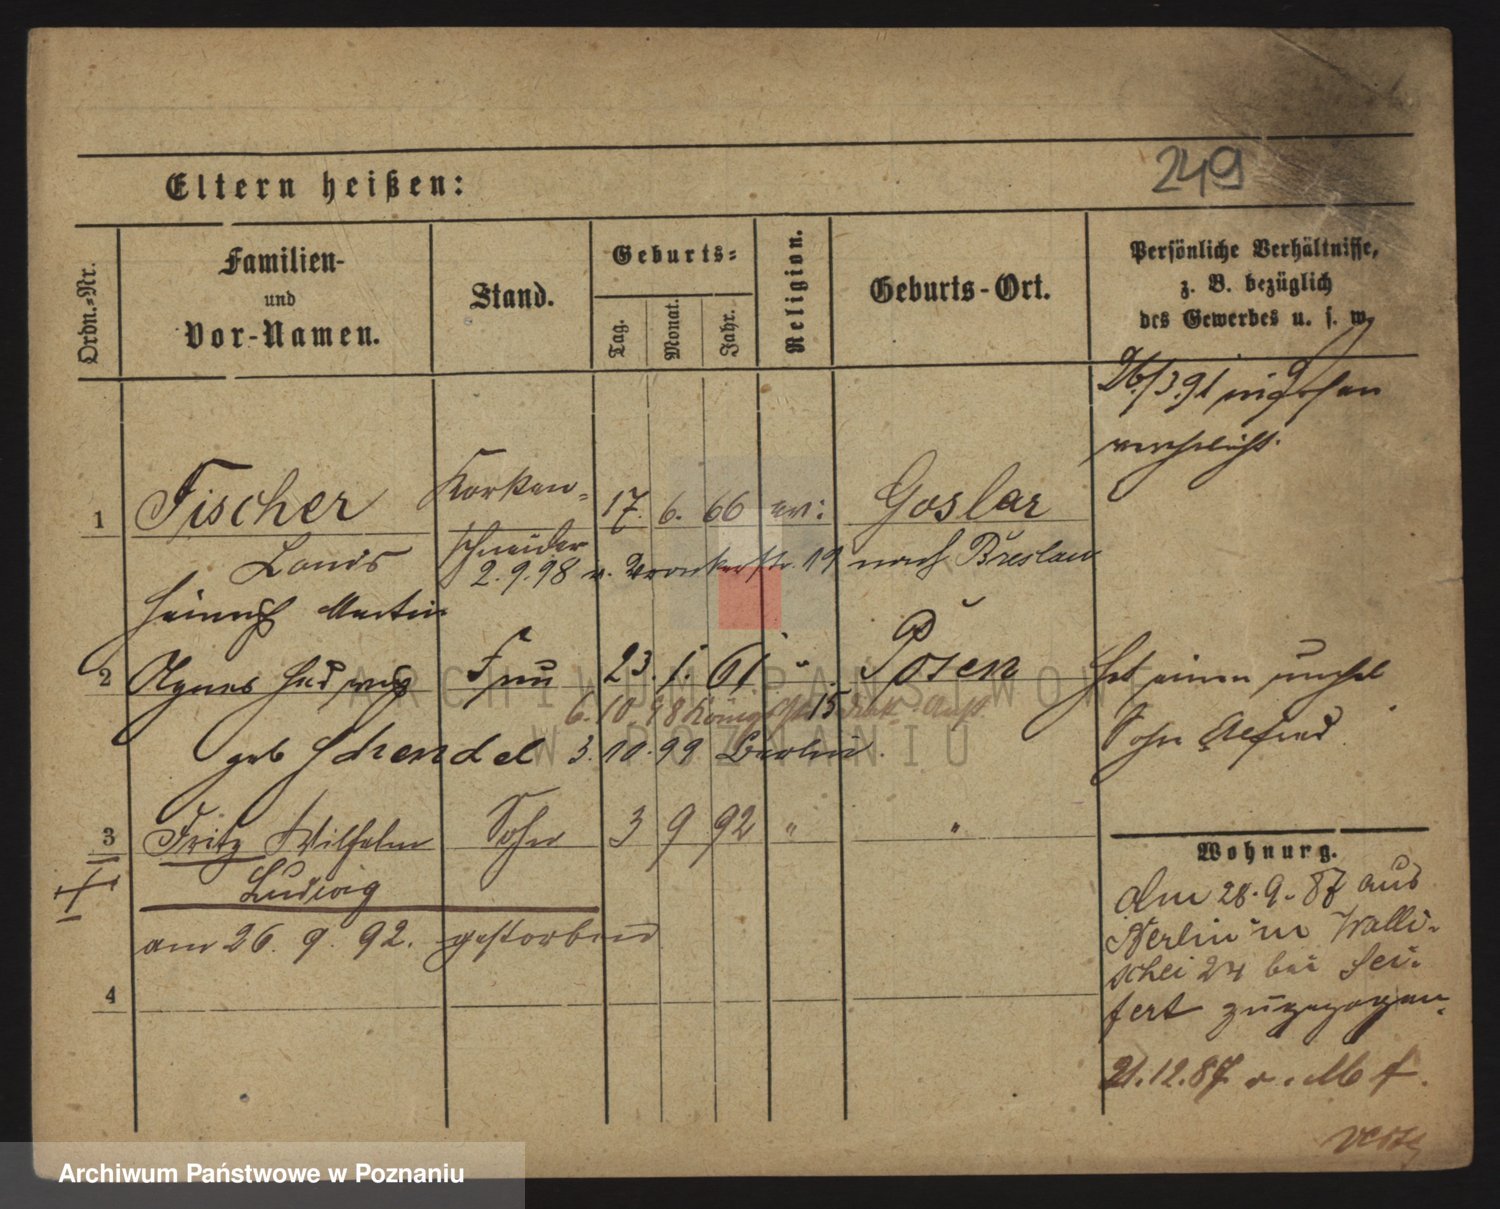 249
Eltern heißen:
Ordn.-Nr.
Familien-
und
Vor-Namen.
Stand.
Geburts-
Tag.
Monat.
Jahr.
Religion.
Geburts-Ort.
Persönliche Verhältnisse,
z. B. bezüglich
des Gewerbes u. s. w.
verehelicht.
1 Fischer Korken- 17. 6. 66 ev: Goslar
Louis schneider
2.9.98 v. Wronkerstr. 19 nach Breslau
Heinrich Martin
2 Agnes Hedwig Frau 23. 1. 61 " Posen
Hat einen unehel
6.10.98 15
geb Schendel 3.10.99 Berlin.
Sohn Alfred
3 Fritz Wilhelm Sohn 3 9 92 " "
Ludwig
am 26. 9. 92. gestorben
4
Wohnung.
Am 28.9.87 aus
Berlin in Walli-
schei 24 bei Sei-
fert zugezogen.
21.12.87 v.
ARCHIWUM PAŃSTWOWE
W POZNANIU
Archiwum Państwowe w Poznaniu